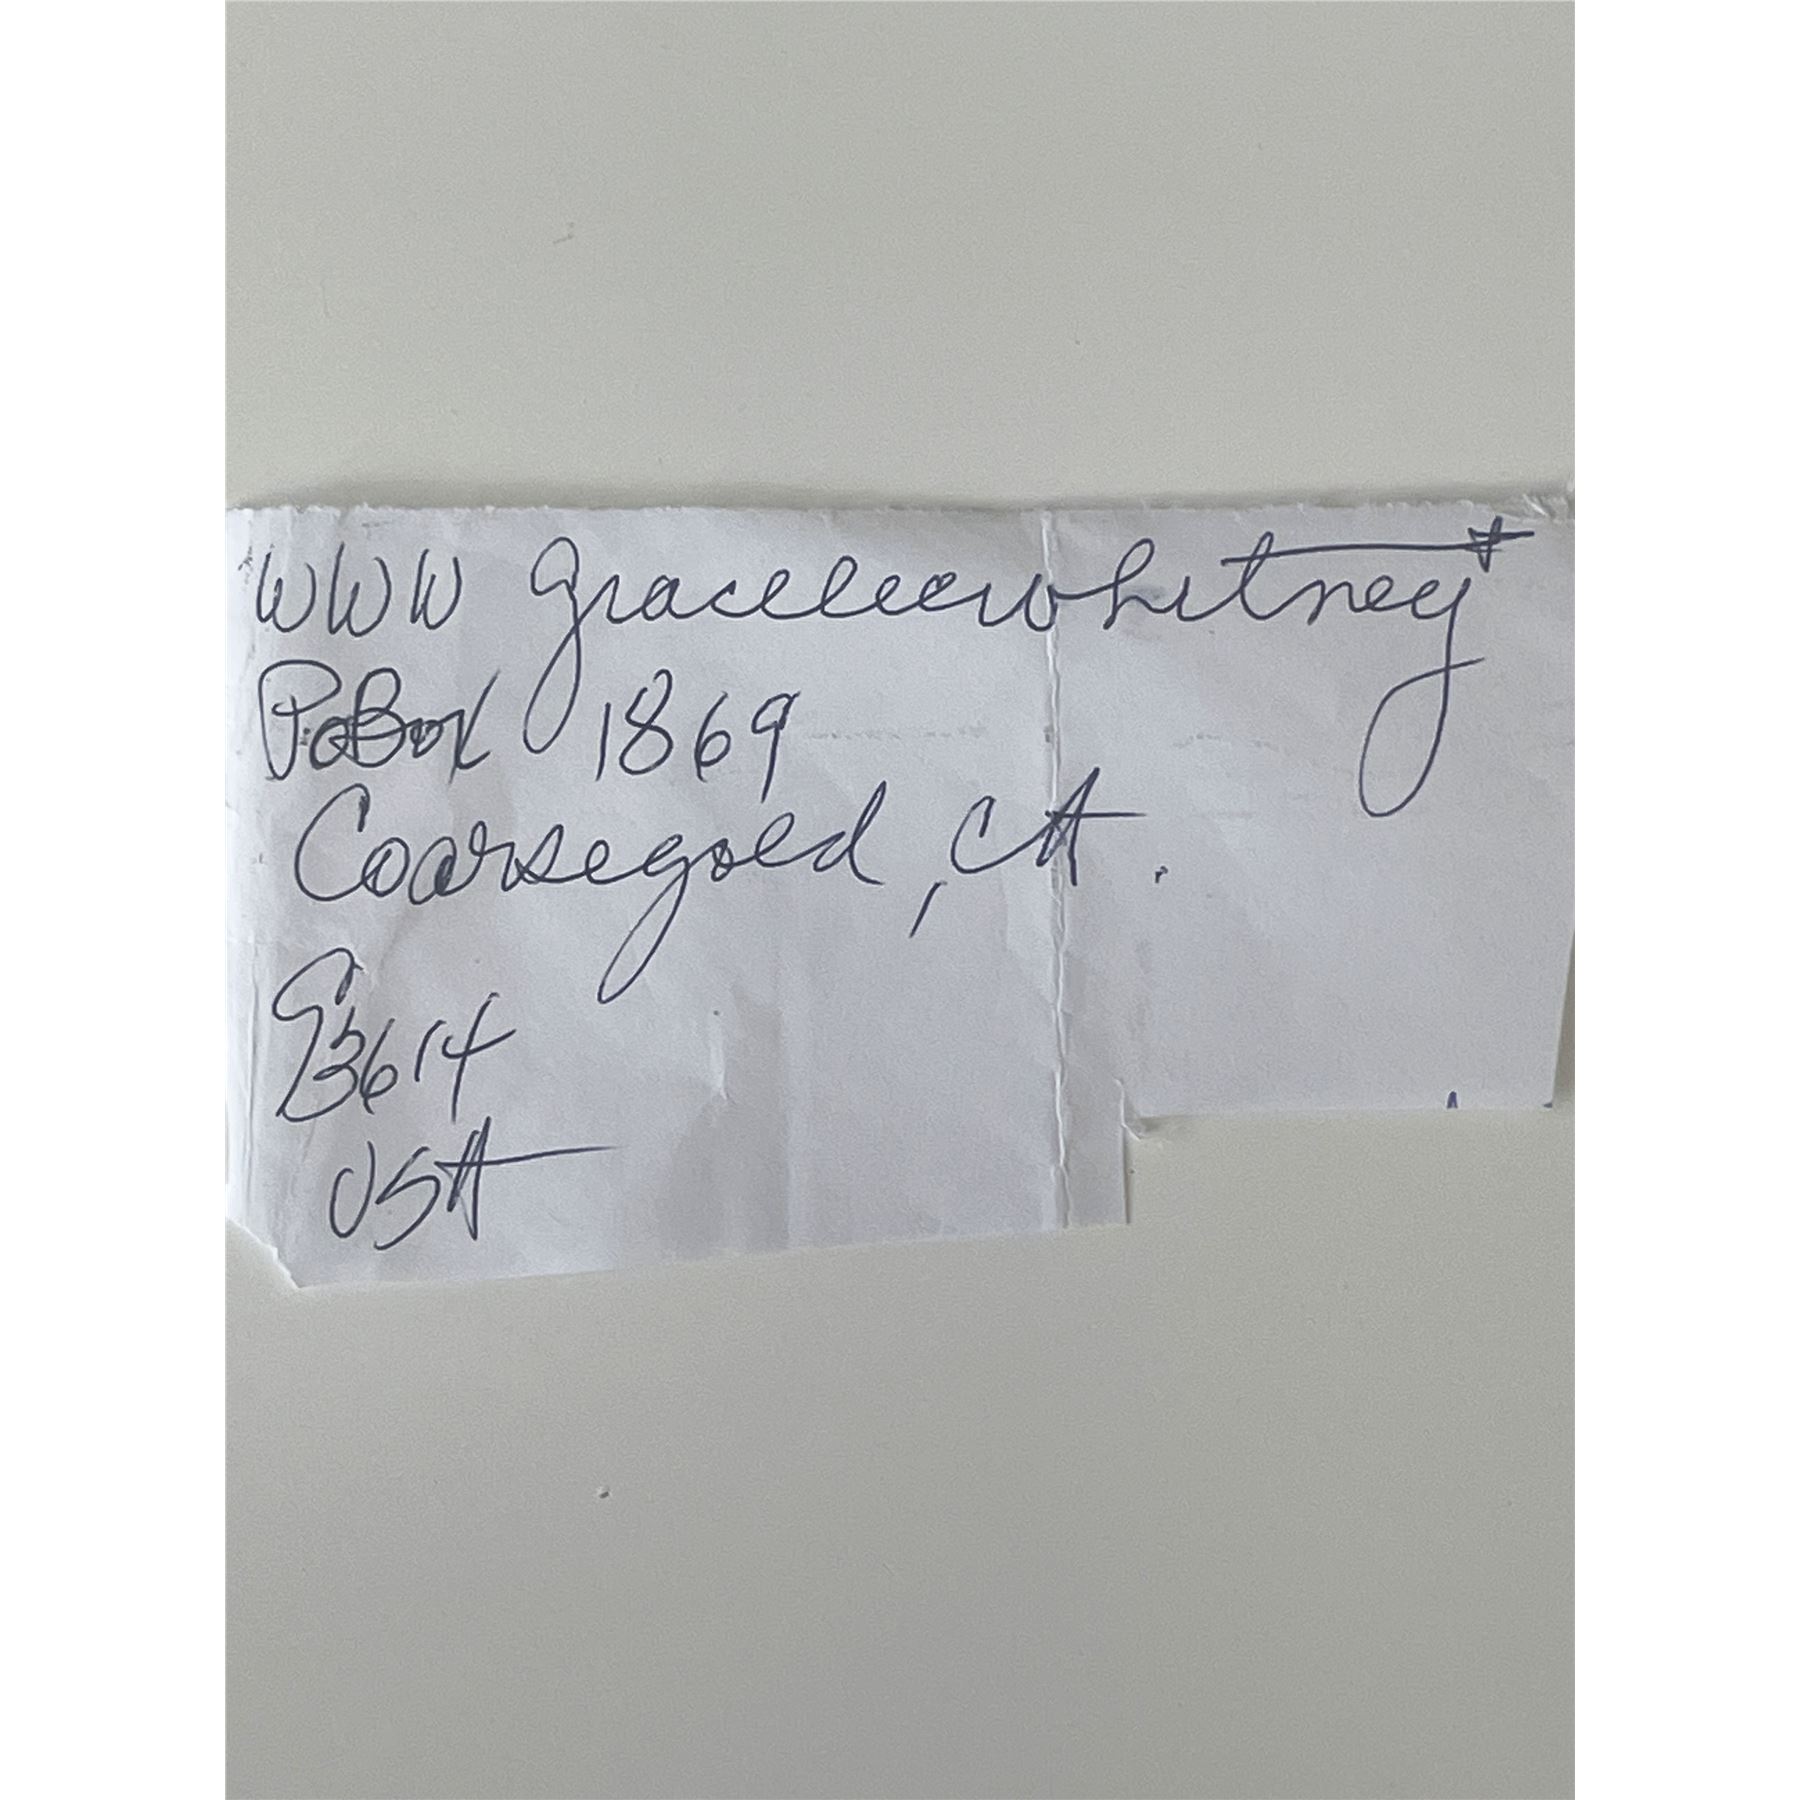 WWW graceleewhitney
PoBox 1869
Coarsegold, CA.
93614
USA